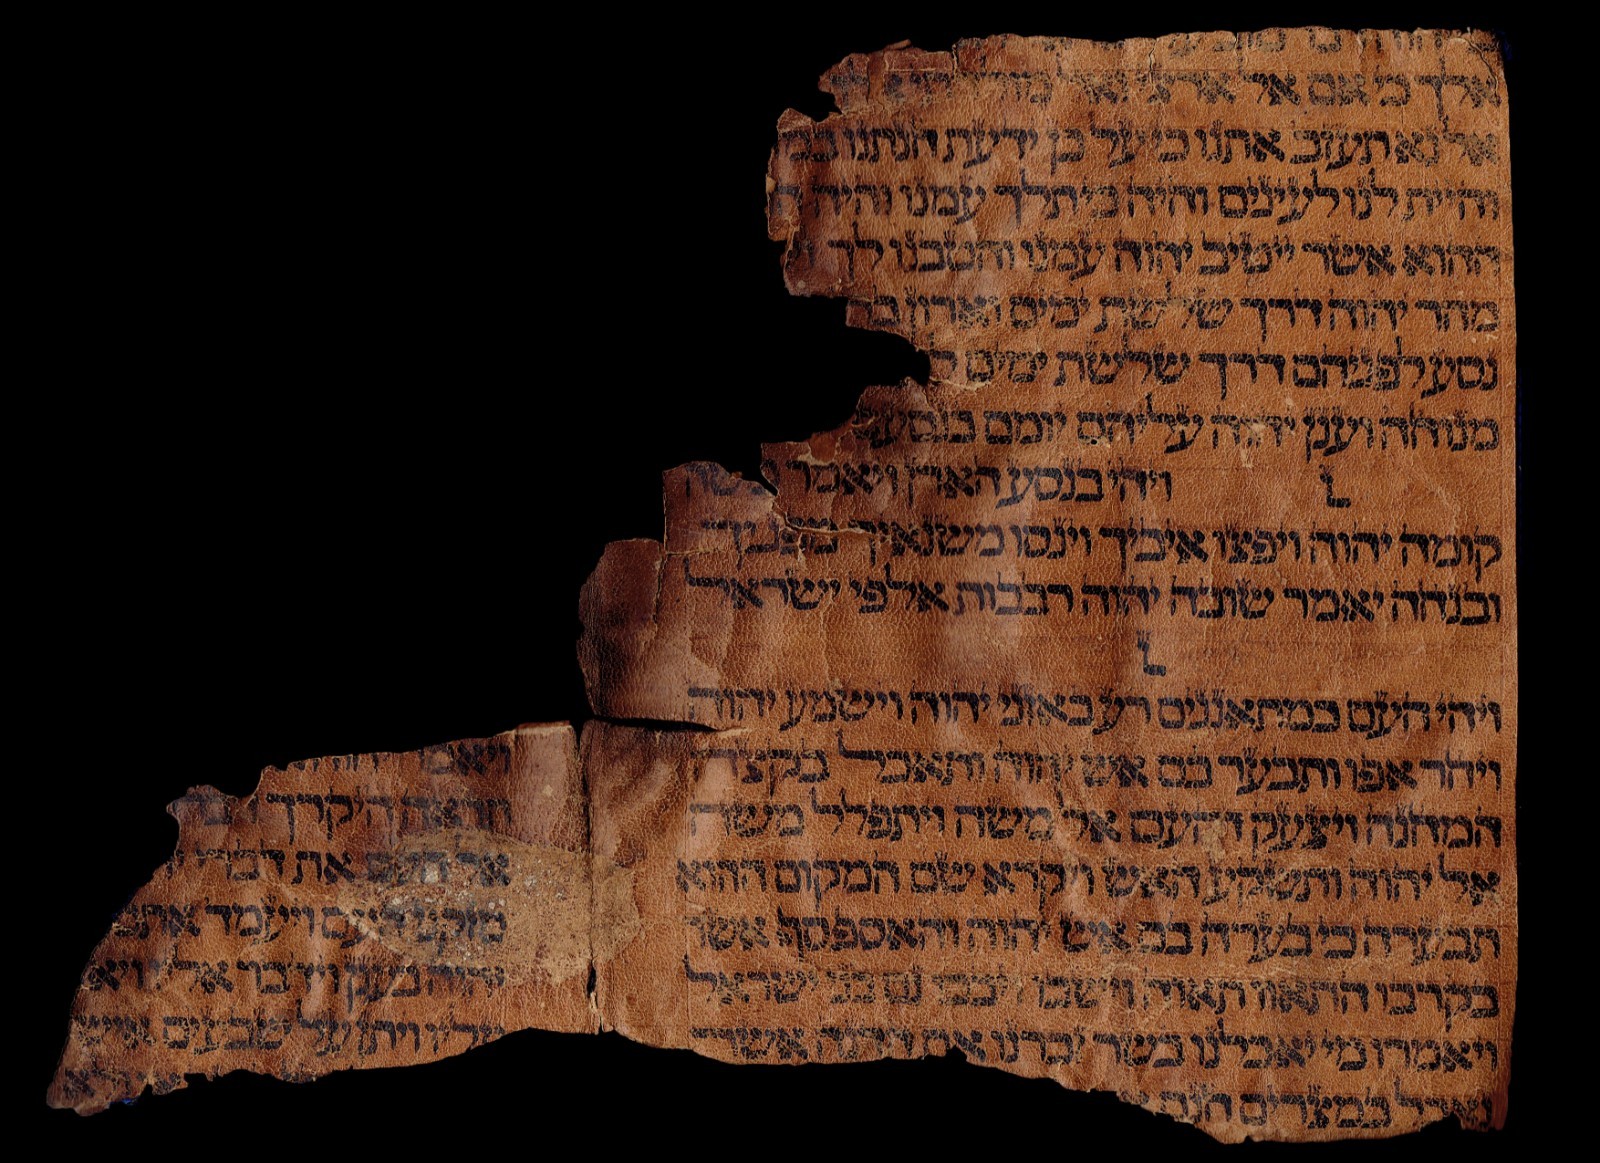 אלך כי אם אל ארצי ואל
אל נא תעזב אתנו כי על כן ידעת חנתנו
והיית לנו לעינים והיה כי תלך עמנו והיה
ההוא אשר ייטיב יהוה עמנו והטבנו לך
מהר יהוה דרך שלשת ימים וארון
נסע לפניהם דרך שלשת ימים
מנוחה וענן יהוה עליהם יומם בנסעם
׆ ויהי בנסע הארן ויאמר משה
קומה יהוה ויפצו איביך וינסו משנאיך מפניך
ובנחה יאמר שובה יהוה רבבות אלפי ישראל
׆
ויהי העם כמתאננים רע באזני יהוה וישמע יהוה
ויחר אפו ותבער בם אש יהוה ותאכל בקצה
המחנה ויצעק העם אל משה ויתפלל משה
אל יהוה ותשקע האש ויקרא שם המקום ההוא
תבערה כי בערה בם אש יהוה והאספסף אשר
בקרבו התאוו תאוה וישבו ויבכו גם בני ישראל
ויאמרו מי יאכלנו בשר זכרנו את הדגה אשר
נאכל במצרים חנם
ויאמר יהוה
היקרך
אל העם את דברי
מזקני העם ויעמד אתם
יהוה בענן וידבר אליו
עליו ויתן על שבעים איש